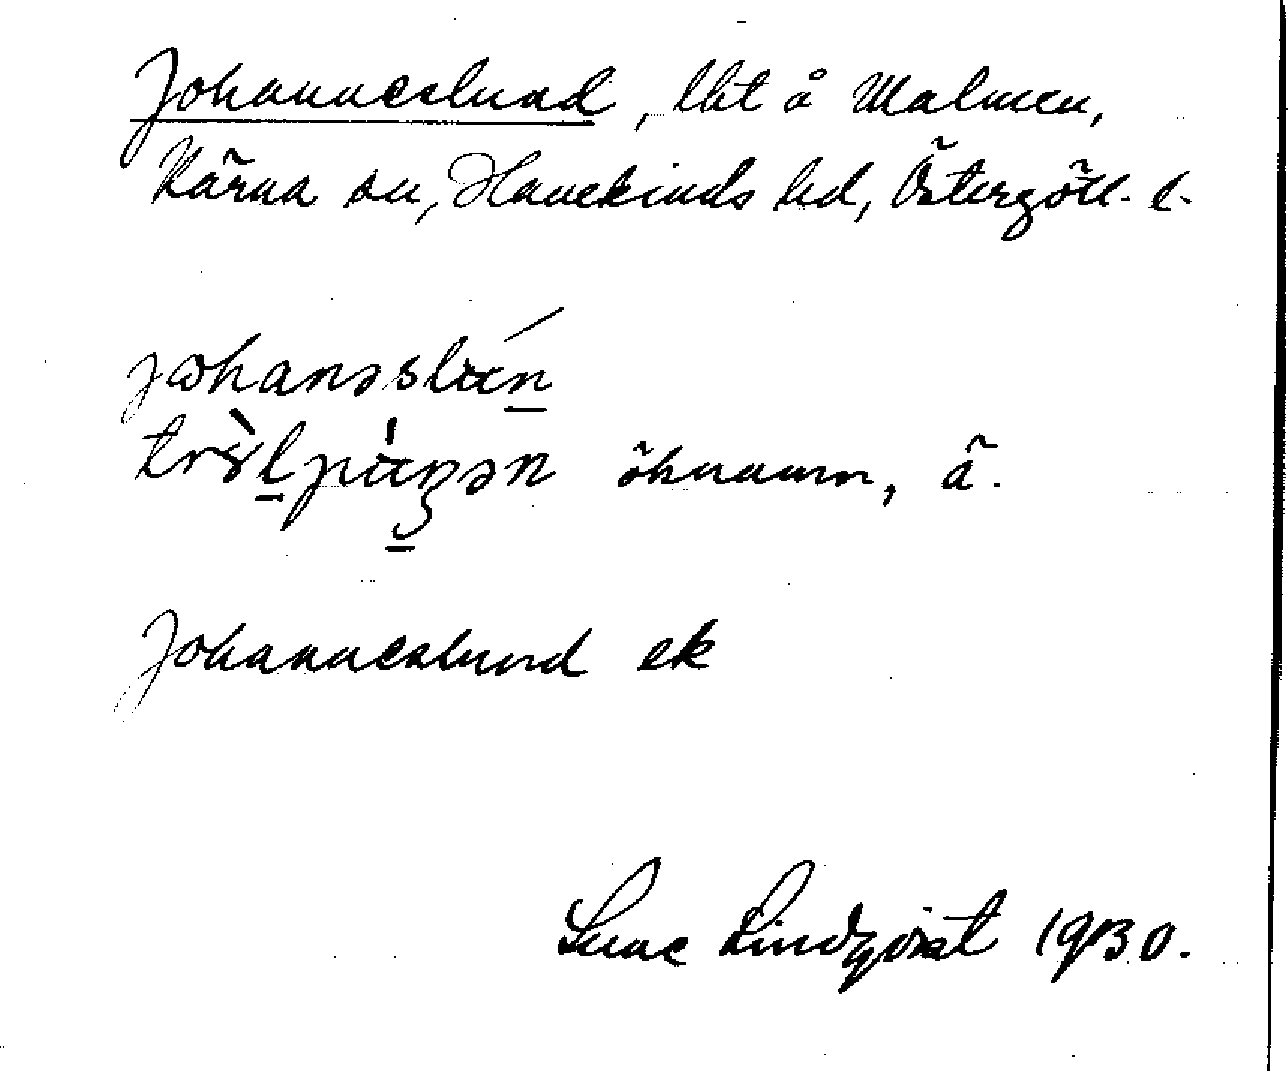 Johanneslund, lht å Malmen,
Kärna sn, Hanekinds hd, Östergötl. l.
johanəslún
öknamn, ä.
Johanneslund ek
Sune Lindqvist 1930.